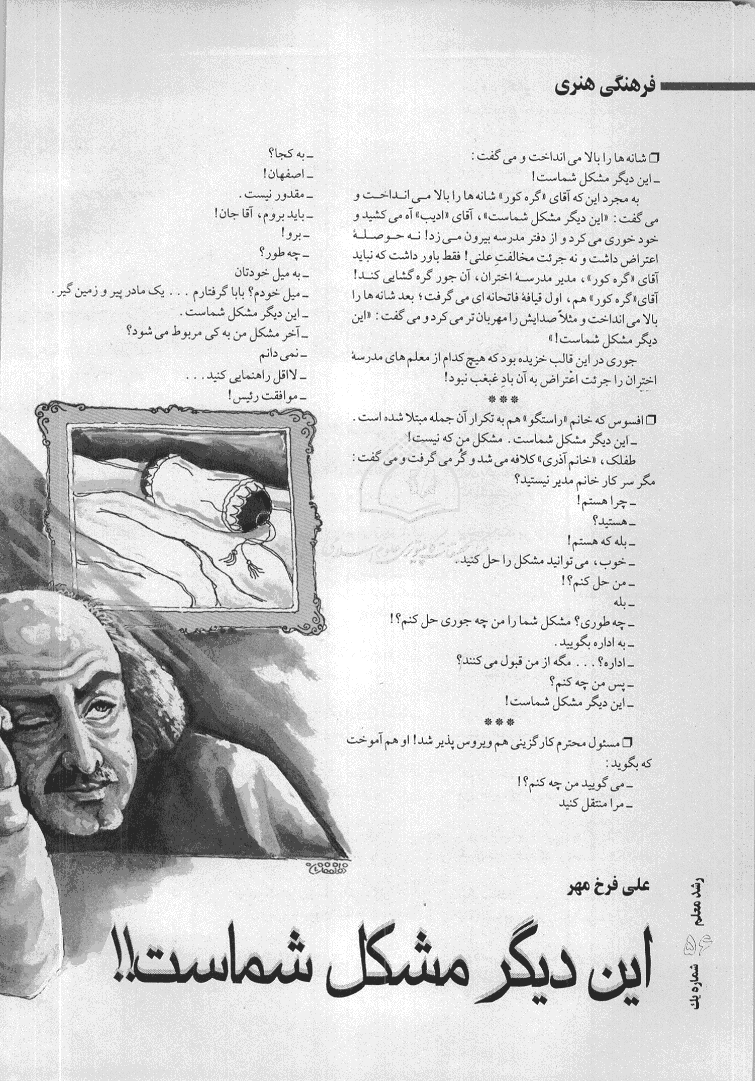 فرهنگی هنری
❒ شانه ها را بالا می انداخت و می گفت:
ـ این دیگر مشکل شماست!
به مجرد این که آقای «گره کور» شانه ها را بالا مـی انـداخـت و
می گفت: «این دیگر مشکل شماست»، آقای «ادیب» آه می کشید و
خود خوری می کرد و از دفتر مدرسه بیرون مـی زد! نـه حـوصـلـهٔ
اعتراض داشت و نه جرئت مخالفتِ علنی! فقط باور داشت که نباید
آقای «گره کور»، مدیر مدرسـهٔ اختران، آن جور گره گشایی کنـد!
آقای «گره کور» هم، اول قیافهٔ فاتحانه ای می گرفت؛ بعد شانه ها را
بالا می انداخت و مثلاً صدایش را مهربان تر می کرد و می گفت: «این
دیگر مشکل شماست!»
جوری در این قالب خزیده بود که هیچ کدام از معلم های مدرسهٔ
اختران را جرئت اعْتراض به آن بادِ غبغب نبود!
***
❒ افسوس که خانم «راستگو» هم به تکرار آن جمله مبتلا شده است.
ـ این دیگر مشکل شماست. مشکل من که نیست!
طفلک، «خانم آذری» کلافه می شد و گُر می گرفت و می گفت:
مگر سر کار خانم مدیر نیستید؟
ـ چرا هستم!
ـ هستید؟
ـ بله که هستم!
ـ خوب، می توانید مشکل را حل کنید.
ـ من حل کنم؟!
ـ بله
ـ چه طوری؟ مشکل شما را من چه جوری حل کنم؟!
ـ به اداره بگویید.
ـ اداره؟ . . . مگه از من قبول می کنند؟
ـ پس من چه کنم؟
ـ این دیگر مشکل شماست!
***
❒ مسئول محترم کارگزینی هم ویروس پذیر شد! او هم آموخت
که بگوید:
ـ می گویید من چه کنم؟!
ـ مرا منتقل کنید
ـ به کجا؟
ـ اصفهان!
ـ مقدور نیست.
ـ باید بروم، آقا جان!
ـ برو!
ـ چه طور؟
ـ به میل خودتان
ـ میل خودم؟ بابا گرفتارم . . . یک مادر پیر و زمین گیر.
ـ این دیگر مشکل شماست.
ـ آخر مشکل من به کی مربوط می شود؟
ـ نمی دانم
ـ لااقل راهنمایی کنید. . .
ـ موافقت رئیس!
علی فرخ مهر
این دیگر مشکل شماست!!
رشد معلم
۵۴
شماره یك